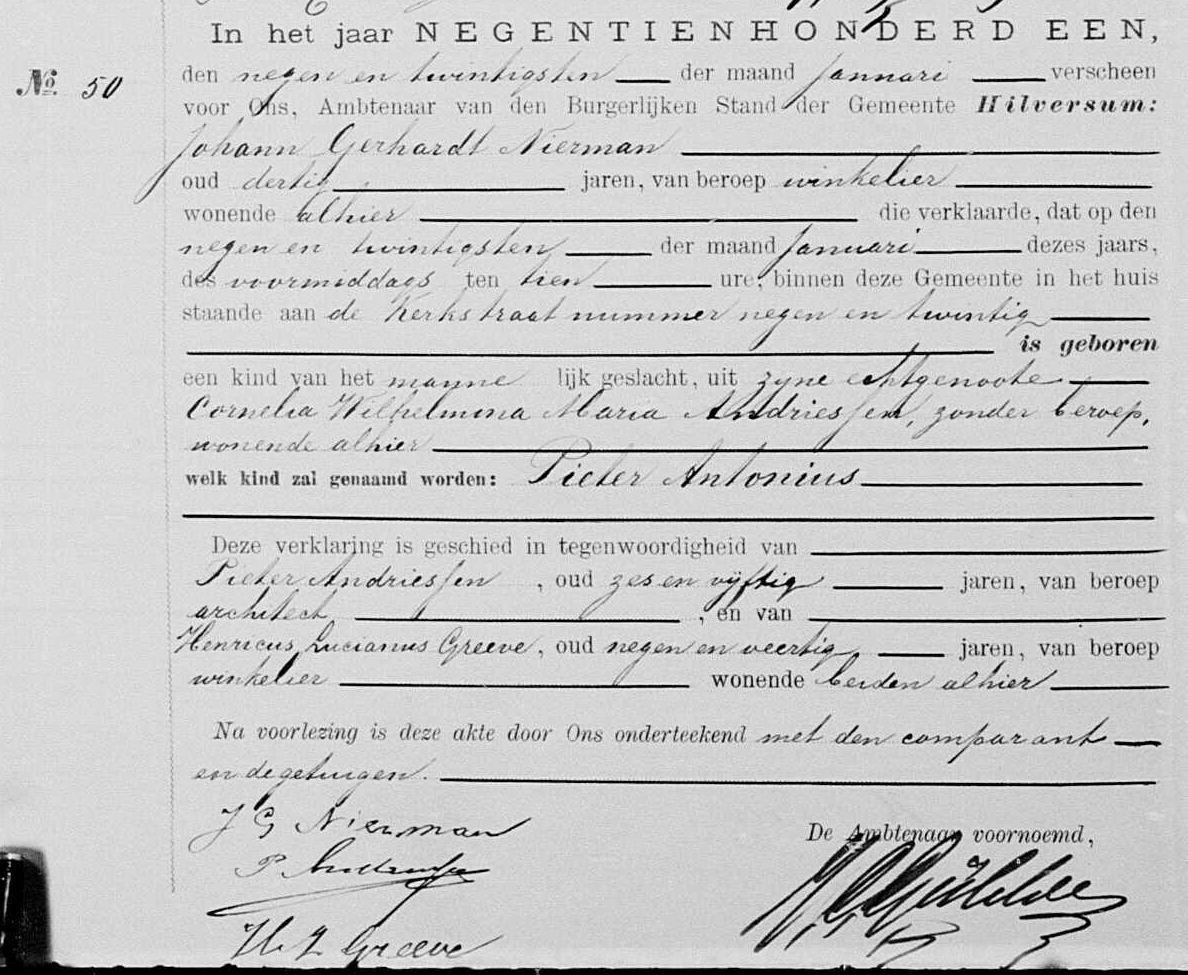 In het jaar NEGENTIENHONDERD EEN,
No. 50
den negen en twintigsten der maand Januari verscheen
voor Ons, Ambtenaar van den Burgerlijken Stand der Gemeente Hilversum:
Johann Gerhardt Nierman
oud dertig jaren, van beroep winkelier
wonende alhier die verklaarde, dat op den
negen en twintigsten der maand Januari dezes jaars,
des voormiddags ten tien ure, binnen deze Gemeente in het huis
staande aan de Kerkstraat nummer negen en twintig
is geboren
een kind van het manne lijk geslacht, uit zyne echtgenoote
Cornelia Wilhelmina Maria Andriessen, zonder beroep,
wonende alhier
welk kind zal genaamd worden: Pieter Antonius
Deze verklaring is geschied in tegenwoordigheid van
Pieter Andriessen, oud zes en vyftig jaren, van beroep
architect, en van
Henricus Lucianus Greeve, oud negen en veertig jaren, van beroep
winkelier wonende beiden alhier
Na voorlezing is deze akte door Ons onderteekend met den comparant
en de getuigen.
J G Nierman
De Ambtenaar voornoemd,
P
H L Greeve